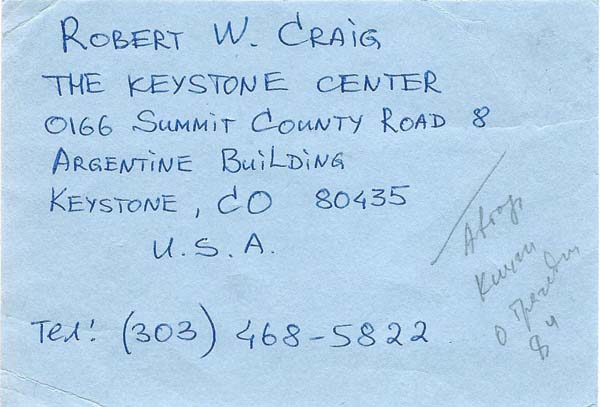 ROBERT W. CRAIG
THE KEYSTONE CENTER
0166 SUMMIT COUNTY ROAD 8
ARGENTINE BUILDING
KEYSTONE, CO 80435
U.S.A.
Тел: (303) 468-5822
Автор
книги
о трагедии